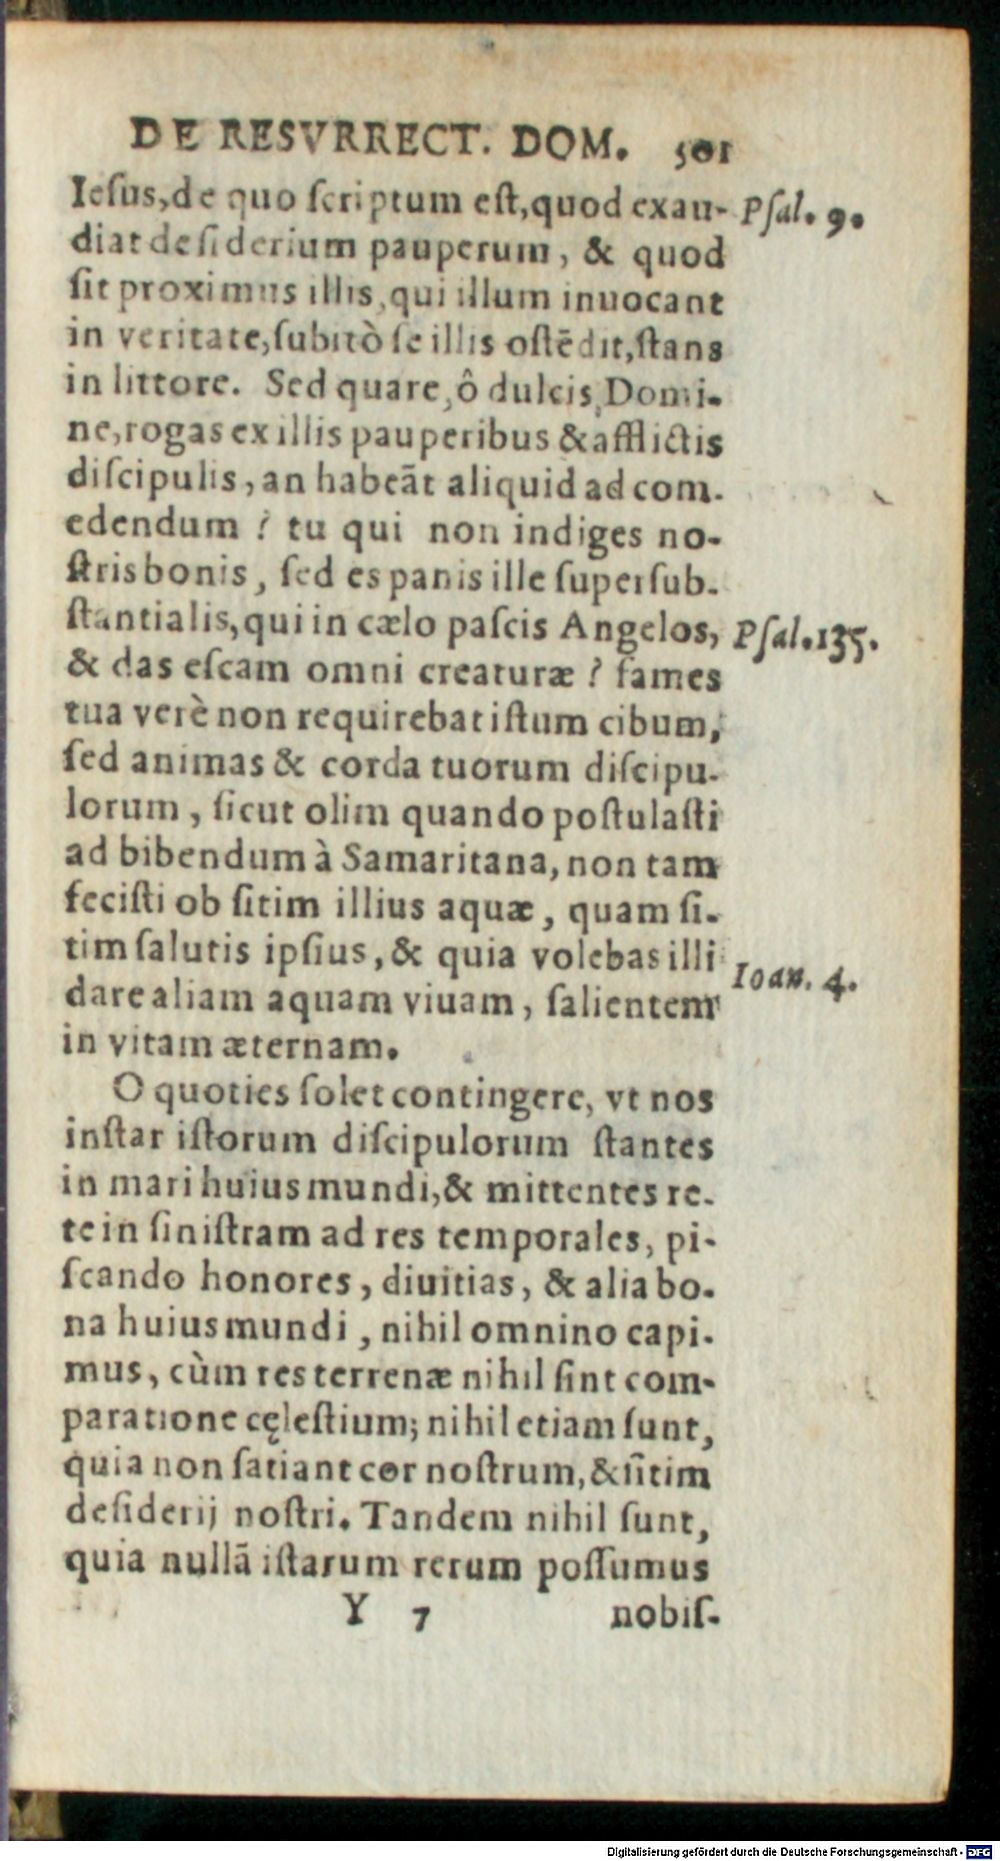 DE RESVRRECT. DOM. 501
Iesus,de quo ſcriptum eſt,quod exau- Pſal. 9.
diat deſiderium pauperum, & quod
ſit proximus illis,qui illum inuocant
in veritate,ſubitò ſe illis oſtēdit,ſtans
in littore. Sed quare,ô dulcis,Domi-
ne,rogas ex illis pauperibus & afflictis
diſcipulis, an habeāt aliquid ad com-
edendum ? tu qui non indiges no-
ſtris bonis, ſed es panis ille ſuperſub-
ſtantialis,qui in cælo paſcis Angelos, Pſal.135.
& das eſcam omni creaturæ ? fames
tua verè non requirebat iſtum cibum,
ſed animas & corda tuorum diſcipu-
lorum, ſicut olim quando poſtulaſti
ad bibendum à Samaritana, non tam
feciſti ob ſitim illius aquæ, quam ſi-
tim ſalutis ipſius, & quia volebas illi Ioan. 4.
dare aliam aquam viuam, ſalientem
in vitam æternam.
O quoties ſolet contingere, vt nos
inſtar iſtorum diſcipulorum ſtantes
in mari huius mundi,& mittentes re-
te in ſiniſtram ad res temporales, pi-
ſcando honores, diuitias, & alia bo-
na huius mundi, nihil omnino capi-
mus, cùm res terrenæ nihil ſint com-
paratione cęleſtium; nihil etiam ſunt,
quia non ſatiant cor noſtrum,& ſitim
deſiderij noſtri. Tandem nihil ſunt,
quia nullā iſtarum rerum poſſumus
Y 7 nobiſ-
Digitalisierung gefördert durch die Deutsche Forschungsgemeinschaft - DFG